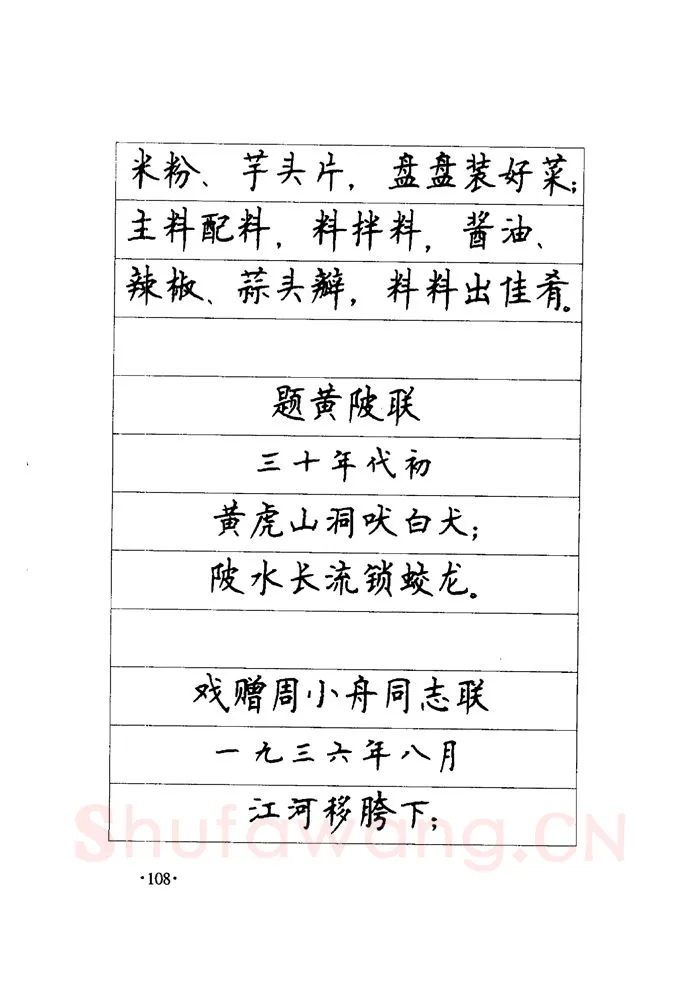 米粉、芋头片，盘盘装好菜；
主料配料，料拌料，酱油、
辣椒、蒜头瓣，料料出佳肴。
题黄陂联
三十年代初
黄虎山洞吠白犬；
陂水长流锁蛟龙。
戏赠周小舟同志联
一九三六年八月
江河移胯下；
Shufawang.CN
·108·